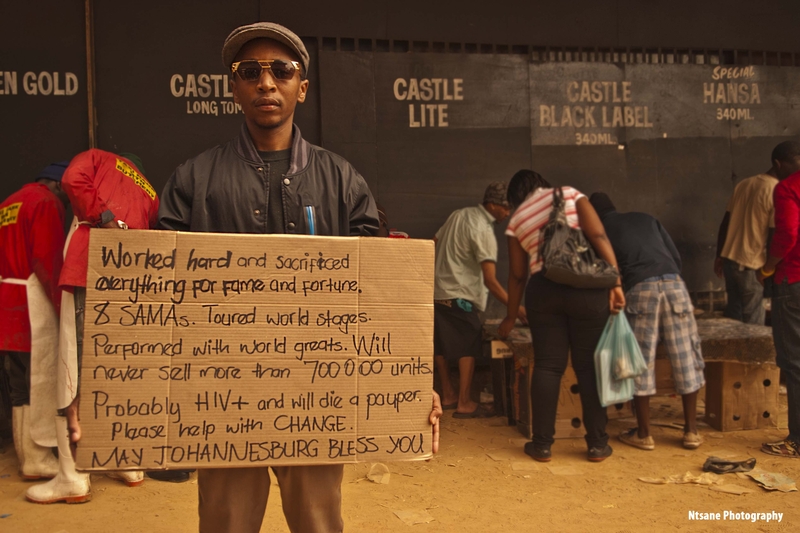 EN GOLD
CASTL
LONG TOM
CASTLE
LITE
CASTLE
BLACK LABEL
340ML
SPECIAL
HANSA
340ML
Worked hard and sacrificed
everything for fame and fortune.
8 SAMAs. Toured world stages.
Performed with world greats. Will
never sell more than 700 000 units.
Probably HIV+ and will die a pauper.
Please help with CHANGE.
MAY JOHANNESBURG BLESS YOU
Ntsane Photography